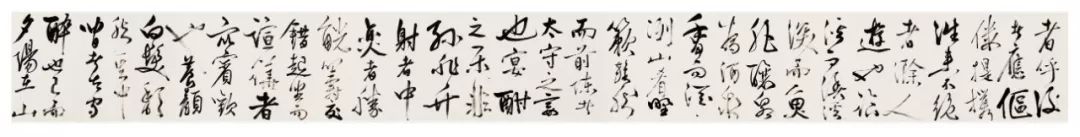 者呼後
者應傴
僂提攜
往來不絕
者滁人
遊也臨
溪而漁溪
深而魚
肥釀泉
為酒泉
香而酒
洌山肴野
蔌雜然
而前陳者
太守之宴
也宴酣
之樂非
絲非竹
射者中
弈者勝
觥籌交
錯起坐而
諠譁者
眾賓歡
也蒼顏
白髮頹
然乎
者太守
醉也已而
夕陽在山